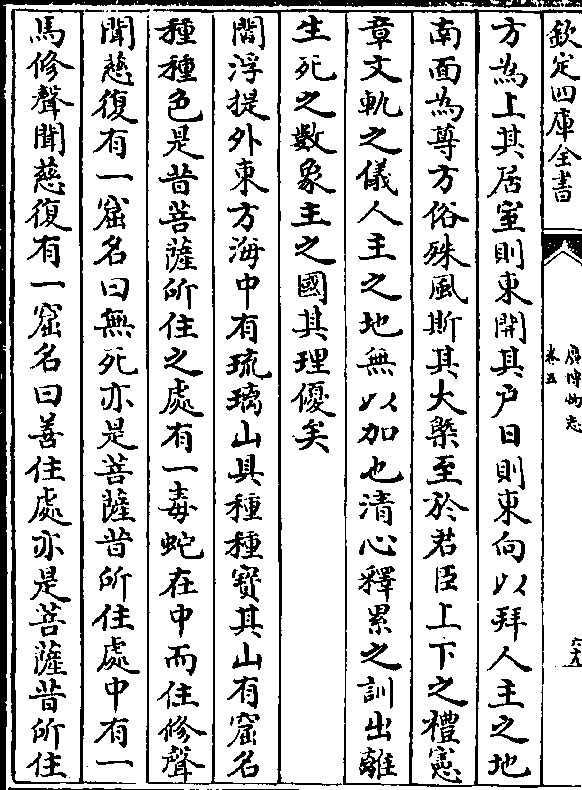 欽定四庫全書
廣博物志
卷五
六十五
方為上其居室則東開其戶日則東向以拜人主之地
南面為尊方俗殊風斯其大槩至於君臣上下之禮憲
章文軌之儀人主之地無以加也清心釋累之訓出離
生死之數象主之國其理優矣
閻浮提外東方海中有琉璃山具種種寶其山有窟名
種種色是昔菩薩所住之處有一毒蛇在中而住修聲
聞慈復有一窟名曰無死亦是菩薩昔所住處中有一
馬修聲聞慈復有一窟名曰善住處亦是菩薩昔所住